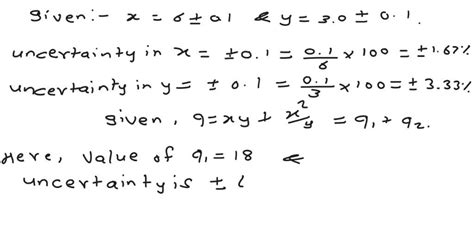 Given:- x = 6 ± 0.1 & y = 3.0 ± 0.1.
uncertainty in x = ±0.1 = 0.1/6 × 100 = ±1.67%
uncertainty in y = ± 0.1 = 0.1/3 × 100 = ± 3.33%
Given, q = xy + x²/y = q₁ + q₂.
Here, Value of q₁ = 18 &
uncertainty is ±